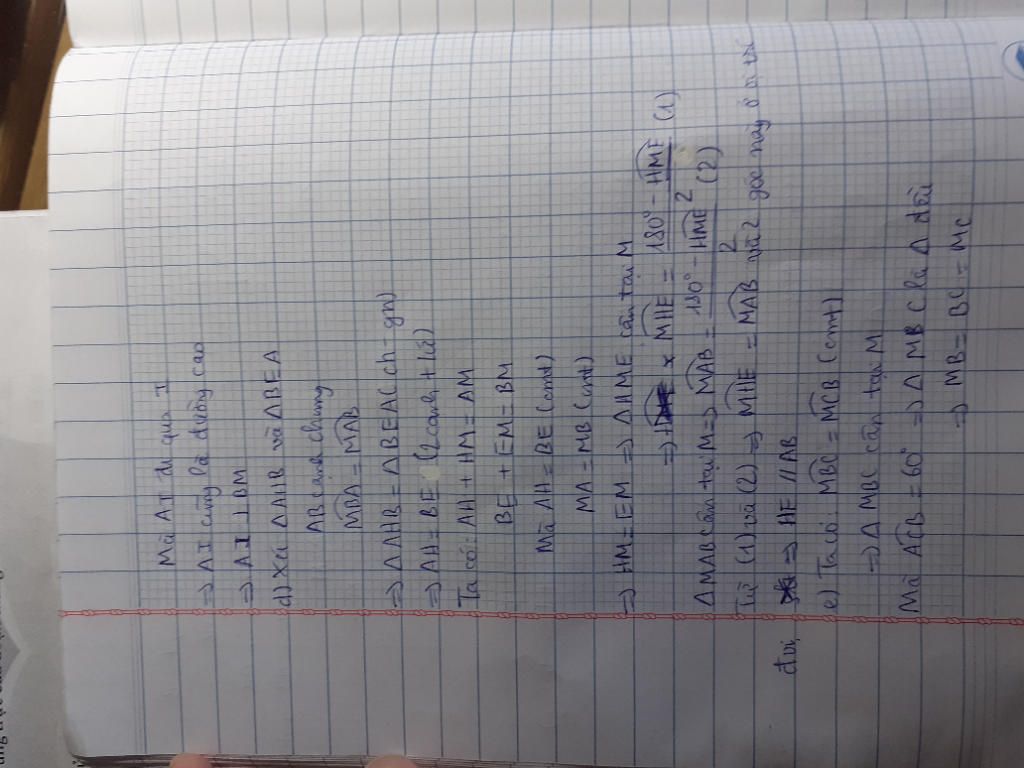 Mà AI đi qua I
=> AI cũng là đường cao
=> AI ⊥ BM
d) Xét ΔAHB và ΔBEA
AB cạnh chung
MBA = MAB
=> ΔAHB = ΔBEA (ch - gn)
=> AH = BE (2 cạnh t/ứ)
Ta có: AH + HM = AM
BE + EM = BM
Mà AH = BE (cmt)
MA = MB (cmt)
=> HM = EM => ΔHME cân tại M
=> MHE = (180° - HME)/2 (1)
ΔMAB cân tại M => MAB = (180° - HME)/2 (2)
Từ (1) và (2) => MHE = MAB mà 2 góc này ở vị trí
đ.vị => HE // AB
e) Ta có: MBC = MCB (cmt)
=> ΔMBC cân tại M
Mà ACB = 60° => ΔMBC là Δ đều
=> MB = BC = MC